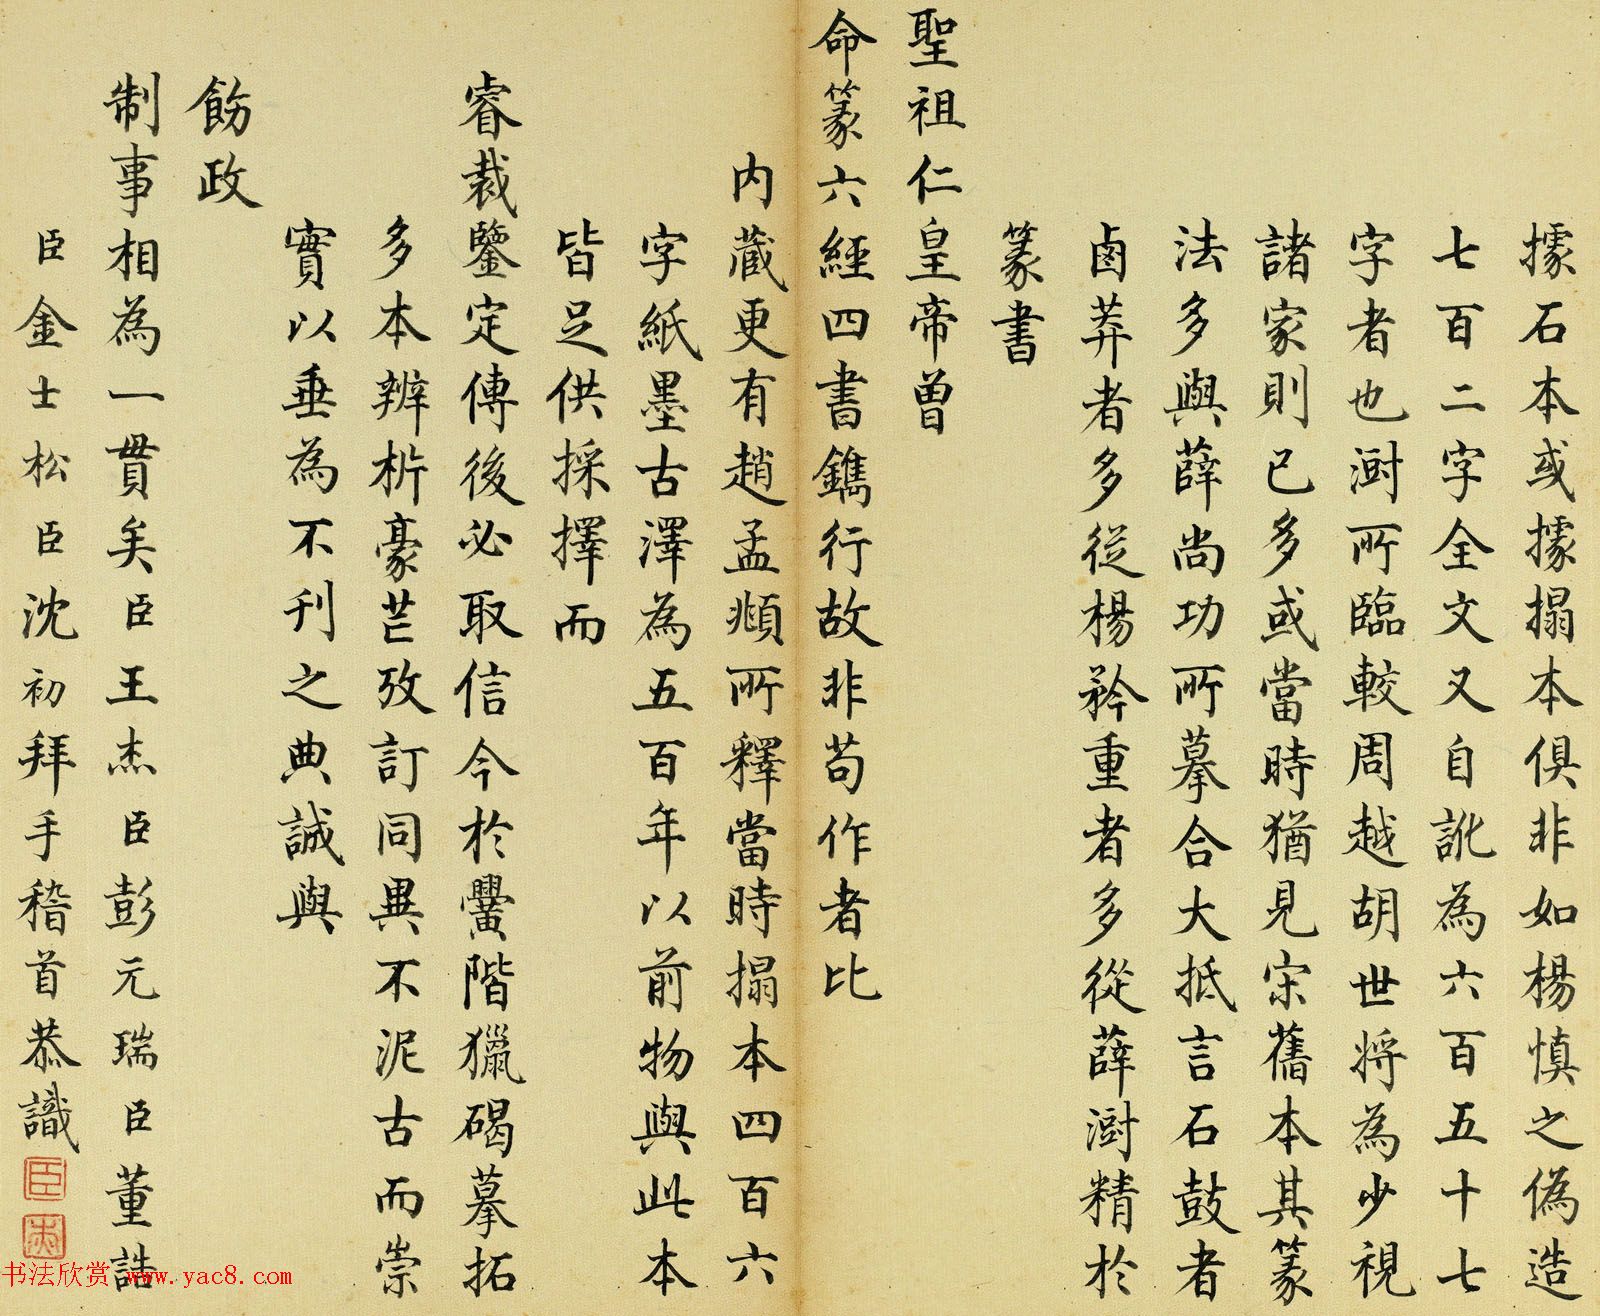 據石本或據搨本俱非如楊慎之偽造
七百二字全文又自訛為六百五十七
字者也澍所臨較周越胡世将為少視
諸家則已多或當時猶見宋舊本其篆
法多與薛尚功所摹合大抵言石鼓者
鹵莽者多從楊矜重者多從薛澍精於
篆書
聖祖仁皇帝曾
命篆六經四書鐫行故非苟作者比
内藏更有趙孟頫所釋當時搨本四百六
字紙墨古澤為五百年以前物與此本
皆足供採擇而
睿裁鑒定傳後必取信今於黌階獵碣摹拓
多本辨析豪芒攷訂同異不泥古而崇
實以垂為不刊之典誠與
飭政
制事相為一貫矣臣王杰臣彭元瑞臣董誥
臣金士松臣沈初拜手稽首恭識
臣
书法欣赏 www.yac8.com